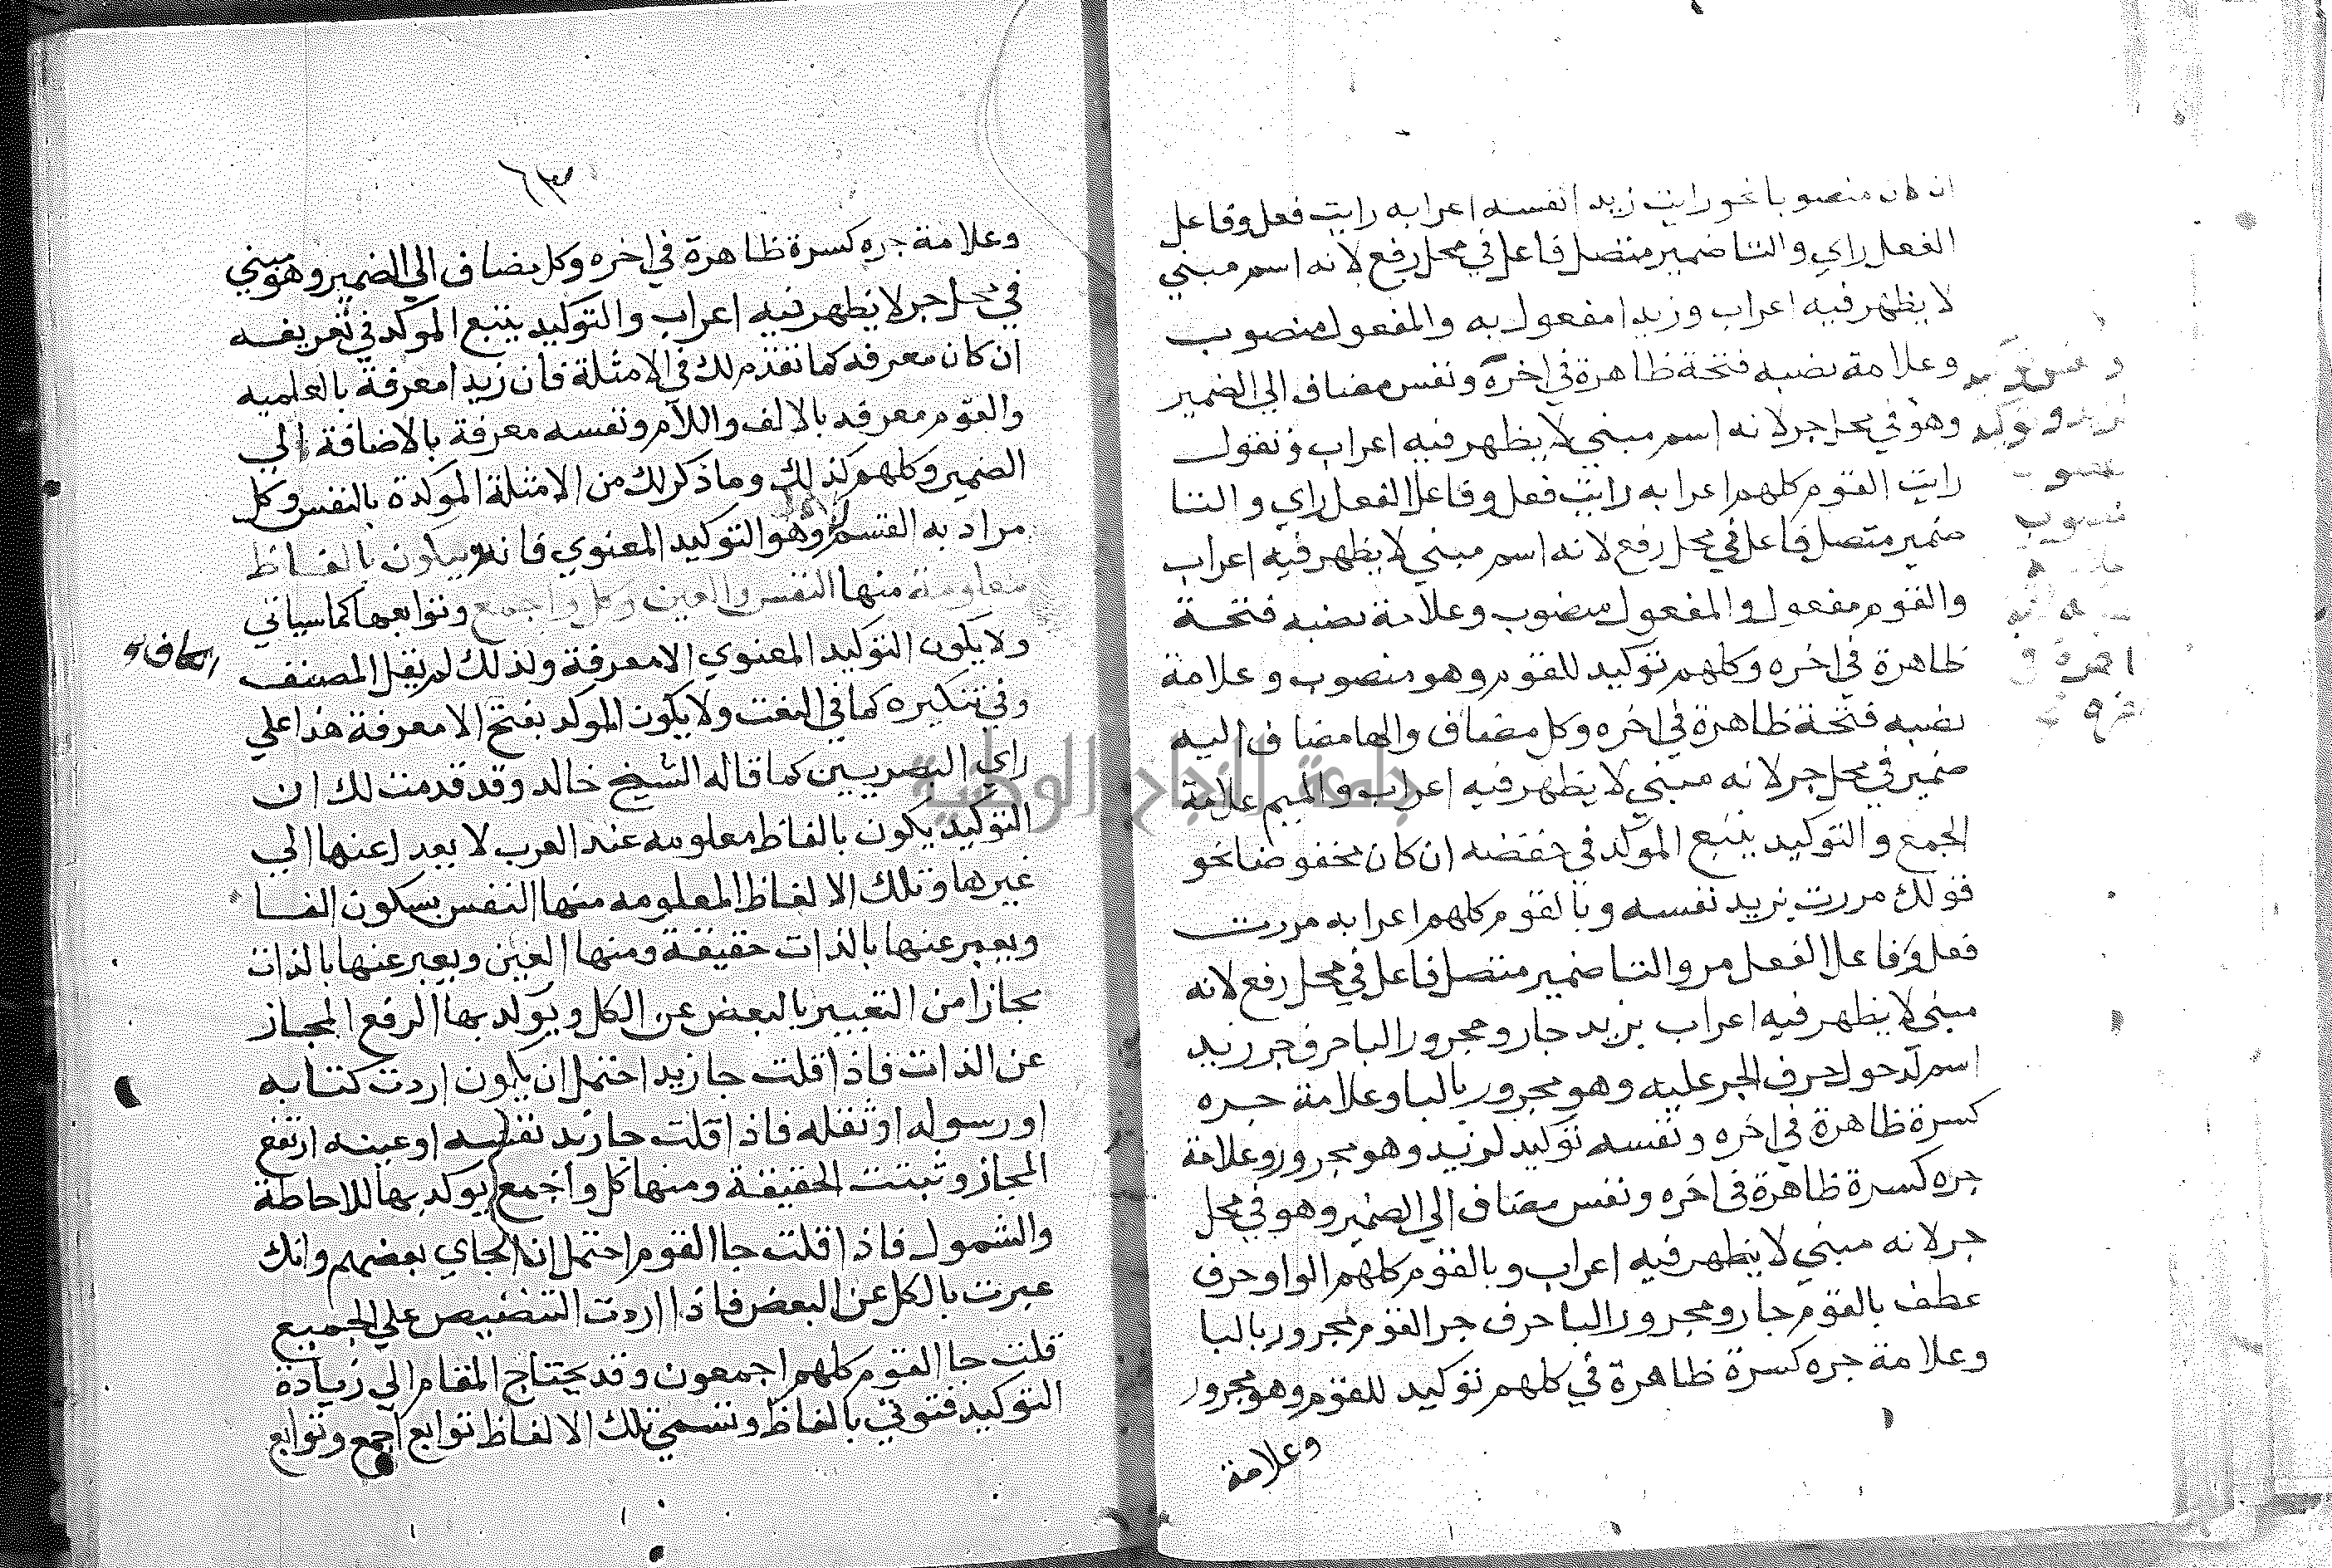 ان كان منصوبا نحو رايت زيدا نفسه اعرابه رايت فعل وفاعل
الفعل راي والتا ضمير متصل فاعل في محل رفع لانه اسم مبني
لا يظهر فيه اعراب وزيدا مفعول به والمفعول منصوب
وعلامة نصبه فتحة ظاهرة في اخره ونفس مضاف الي الضمير
وهو في محل جر لانه اسم مبني لا يظهر فيه اعراب وتقول
رايت القوم كلهم اعرابه رايت فعل وفاعل الفعل راي والتا
ضمير متصل فاعل في محل رفع لانه اسم مبني لا يظهر فيه اعراب
والقوم مفعول والمفعول منصوب وعلامة نصبه فتحة
ظاهرة في اخره وكلهم توكيد للقوم وهو منصوب وعلامة
نصبه فتحة ظاهرة في اخره وكل مضاف والها مضاف اليه
ضمير في محل جر لانه مبني لا يظهر فيه اعراب والميم علامة
الجمع والتوكيد يتبع الموكد في خفضه ان كان مخفوضا نحو
قولك مررت بزيد نفسه وبالقوم كلهم اعرابه مررت
فعل وفاعل الفعل مر والتا ضمير متصل فاعل في محل رفع لانه
مبني لا يظهر فيه اعراب بزيد جار ومجرور البا حرف جر زيد
اسم لدخول حرف الجر عليه وهو مجرور بالبا وعلامة جره
كسرة ظاهرة في اخره ونفسه توكيد لزيد وهو مجرور وعلامة
جره كسرة ظاهرة في اخره ونفس مضاف الي الضمير وهو في محل
جر لانه مبني لا يظهر فيه اعراب وبالقوم كلهم الواو حرف
عطف بالقوم جار ومجرور البا حرف جر القوم مجرور بالبا
وعلامة جره كسرة ظاهرة في كلهم توكيد للقوم وهو مجرور
وعلامة
٦٣
وعلامة جره كسرة ظاهرة في اخره وكل مضاف الي الضمير وهو مبني
في محل جر لا يظهر فيه اعراب والتوكيد يتبع الموكد في تعريفه
ان كان معرفه كما تقدم لك في الامثلة فان زيدا معرفة بالعلميه
والقوم معرفه بالالف واللام ونفسه معرفة بالاضافة الي
الضمير وكلهم كذلك وما ذكر لك من الامثلة الموكدة بالنفس وكل
مراد به القسم وهو التوكيد المعنوي فانه يكون بالفاظ
معلومة منها النفس والعين وكل واجمع وتوابعها كما سياتي
ولا يكون التوكيد المعنوي الا معرفة ولذلك لم يقل المصنف
وفي تنكيره كما في النعت ولا يكون الموكد بفتح الا معرفة هذا علي
راي البصريين كما قاله الشيخ خالد وقد قدمت لك ان
التوكيد يكون بالفاظ معلومه عند العرب لا يعدل عنها الي
غيرها وتلك الالفاظ المعلومه منها النفس بسكون الفا
ويعبر عنها بالذات حقيقة ومنها العين ويعبر عنها بالذات
مجازا من التعبير بالبعض عن الكل ويوكد بها لرفع المجاز
عن الذات فاذا قلت جا زيد احتمل ان يكون اردت كتابه
او رسوله او ثقله فاذا قلت جا زيد نفسه او عينه ارتفع
المجاز وثبتت الحقيقة ومنها كل واجمع يوكد بها للاحاطة
والشمول فاذا قلت جا القوم احتمل ان الجاي بعضهم وانك
عبرت بالكل عن البعض فاذا اردت التنصيص علي الجميع
قلت جا القوم كلهم اجمعون وقد يحتاج المقام الي زيادة
التوكيد فتوتي بالفاظ وتسمي تلك الالفاظ توابع اجمع وتوابع
جامعة النجاح الوطنية